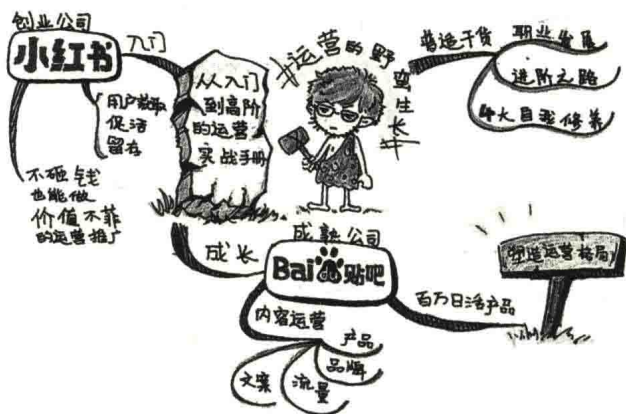 创业公司
小红书
入门
用户获取
促活
留存
不砸钱
也能做
价值不菲
的运营推广
从入门
到高阶
的运营
实战手册
#运营的野蛮生长#
普适干货
职业发展
进阶之路
4大自我修养
成长
成熟公司
Bai贴吧
内容运营
产品
品牌
流量
文案
百万日活产品
塑造运营格局